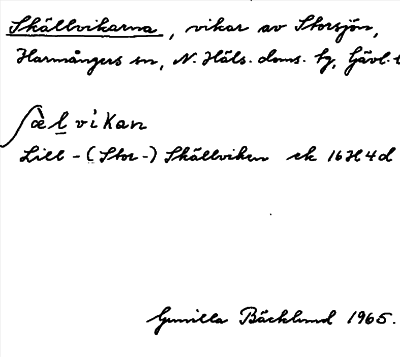 Skällvikarna, vikar av Storsjön,
Harmångers sn, N. Häls. doms. tg, Gävl. l
ʃæ̀lvikan
Lill-(Stor-) Skällviken ek 16H4d
Gunilla Bäcklund 1965.